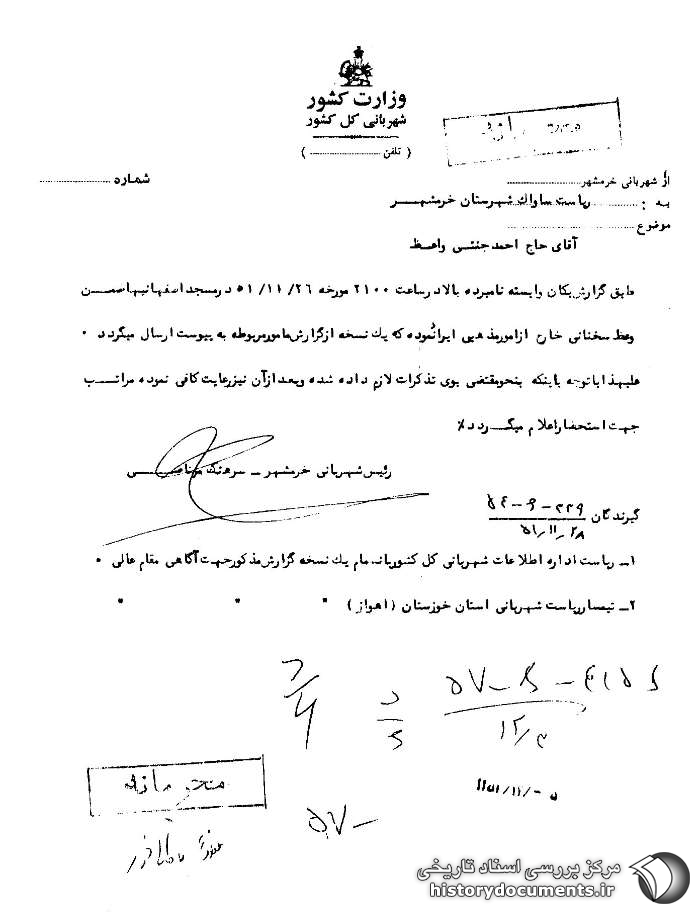 وزارت کشور
شهربانی کل کشور
( تلفن ................ )
محرمانه
شماره ................
از شهربانی خرمشهر ................
به : ............ ریاست ساواك شهرستان خرمشهر
موضوع ................
آقای حاج احمد جنتی واعظ
طبق گزارش یگان وابسته نامبرده بالا در ساعت ۲۱۰۰ مورخه ۵۱/۱۱/۲۶ در مسجد اصفهانیها ضمن
وعظ سخنانی خارج از امور مذهبی ایراد نموده که یك نسخه از گزارش مامور مربوطه به پیوست ارسال میگردد ۰
علیهذا با توجه باینکه بنحو مقتضی بوی تذکرات لازم داده شده و بعد از آن نیز رعایت کافی نموده مراتب
جهت استحضار اعلام میگردد ٪
رئیس شهربانی خرمشهر – سرهنگ
گیرندگان
۵۱/۱۱/۲۸
۱– ریاست اداره اطلاعات شهربانی کل کشور بانضمام یك نسخه گزارش مذکور جهت آگاهی مقام عالی ۰
۲– تیمسار ریاست شهربانی استان خوزستان ( اهواز ) " " "
محرمانه
مرکز بررسی اسناد تاریخی
historydocuments.ir